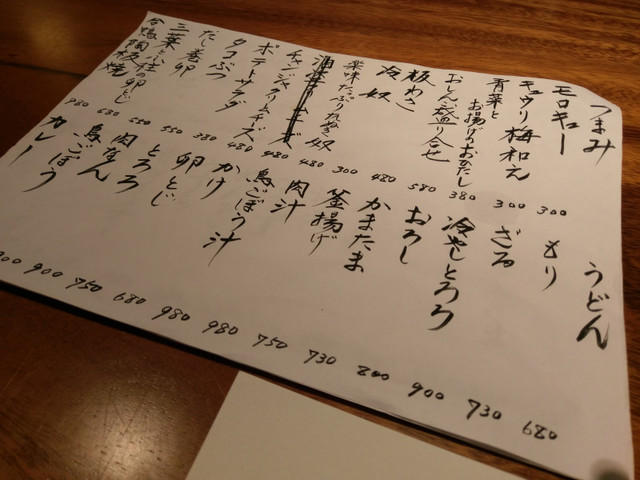 つまみ
モロキュー 300
キュウリ梅和え 300
青菜とお揚げのおひたし 380
おしんこ盛り合せ 580
板わさ 480
冷奴 300
薬味たっぷりねぎ奴 480
480
チャンジャクリームチーズ 480
ポテトサラダ 380
タコぶつ 550
だし巻卵 550
三つ葉と小柱の卵とじ 680
合鴨陶板焼 980
うどん
もり 680
ざる 730
冷やしとろろ 900
おろし 800
かまたま 730
釜揚げ 750
肉汁 980
鳥ごぼう汁 980
かけ 680
卵とじ 750
とろろ 900
肉なん 900
鳥ごぼう
カレー